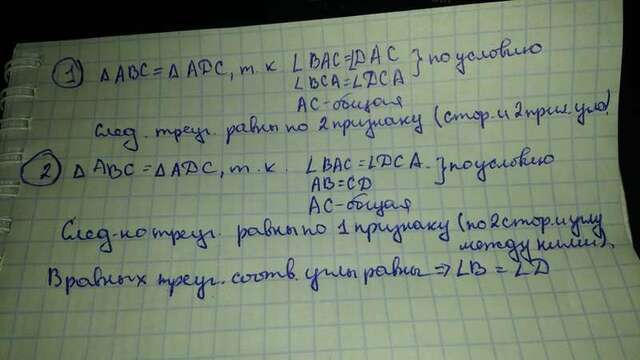 1) ∆ ABC = ∆ ADC, т. к ∠BAC=∠DAC } по условию
∠BCA=∠DCA
AC-общая
След. треуг. равны по 2 признаку (стор. и 2 прил. угла)
2) ∆ ABC = ∆ ADC, т. к. ∠BAC=∠DCA. } по условию
AB=CD
AC-общая
След-но треуг. равны по 1 признаку (по 2 стор. и углу
между ними).
В равных треуг. соотв. углы равны ⇒ ∠B = ∠D